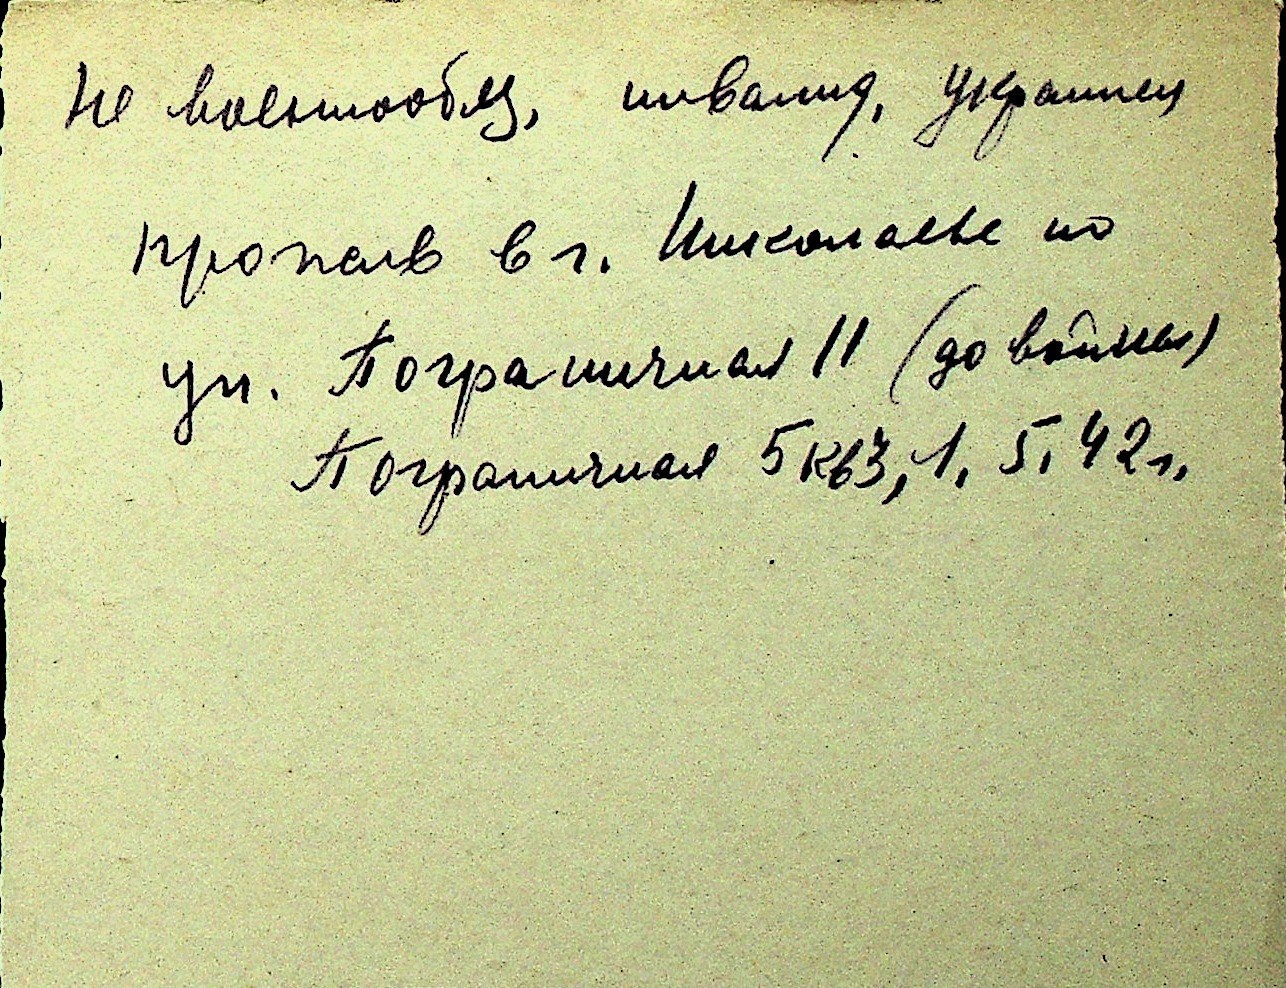 Не военнообяз, инвалид, украинец
прожив в г. Николаеве по
ул. Пограничная 11 (до войны)
Пограничная 5 кв 3, 1. 5. 42 г.